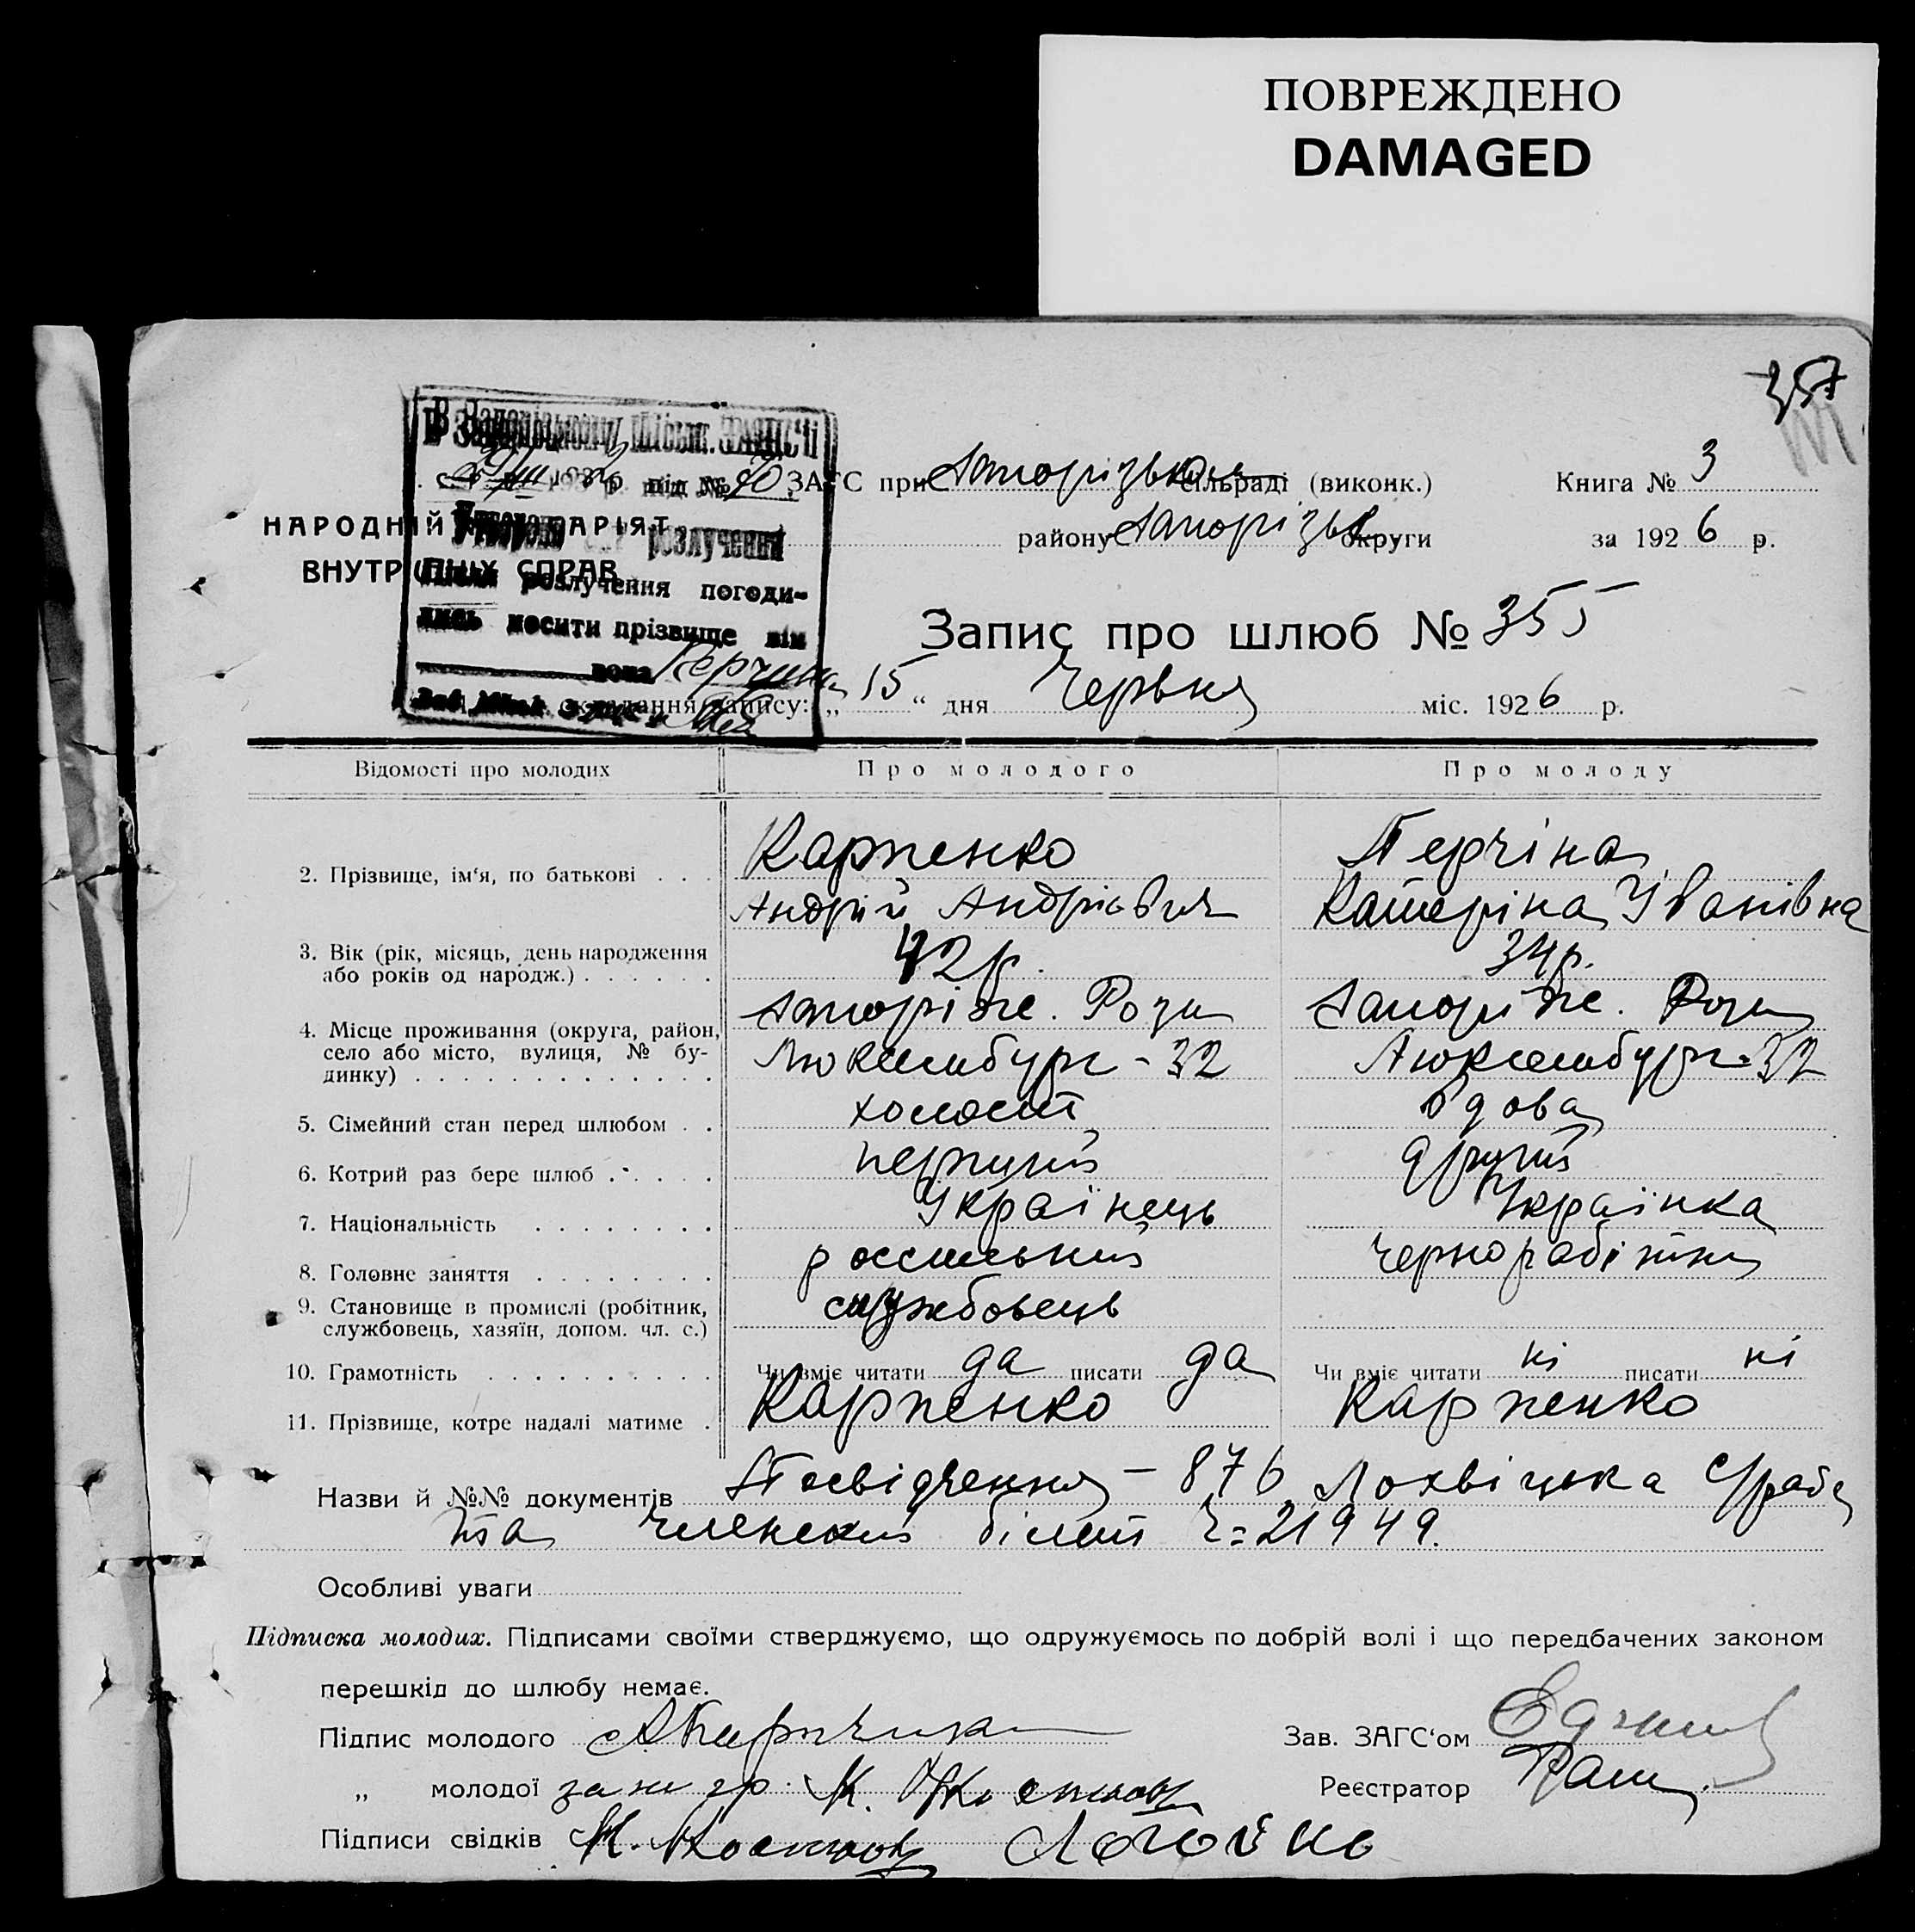 ПОВРЕЖДЕНО
DAMAGED
357
В Запорізькому Міськ. ЗАГС'і
під № 70 ЗАГС при Запорізькому сільраді (виконк.) Книга № 3
НАРОДНІЙ КОМІСАРІЯТ
ВНУТРІШНІХ СПРАВ
розлучення
району Запорізьк округи за 1926 р.
Після розлучення погоди-
лись носити прізвище він
вона Перчина
Запис про шлюб № 355
складання запису: „15“ дня Червня міс. 1926 р.
Відомості про молодих Про молодого Про молоду
2. Прізвище, ім'я, по батькові . . . Карпенко Перчіна
Андрій Андрієвич Катеріна Іванівна
3. Вік (рік, місяць, день народження
або років од народж.) . . . . . . 42 р. 34 р.
4. Місце проживання (округа, район,
село або місто, вулиця, № бу-
динку) . . . . . . . . . . . . . Запоріжє. Рози Запоріжє. Рози
Люксембург - 32 Люксембург - 32
5. Сімейний стан перед шлюбом . . холост вдова
6. Котрий раз бере шлюб . . . . . перший другий
7. Національність . . . . . . . . Українець Українка
8. Головне заняття . . . . . . . . россильний
9. Становище в промислі (робітник,
службовець, хазяїн, допом. чл. с.) службовець
10. Грамотність . . . . . . . . . . Чи вміє читати да писати да Чи вміє читати ні писати ні
11. Прізвище, котре надалі матиме . Карпенко Карпенко
Назви й №№ документів Посвідчення - 876 Лохвіцька
та членский білет Ч=21949.
Особливі уваги
Підписка молодих. Підписами своїми стверджуємо, що одружуємось по добрій волі і що передбачених законом
перешкід до шлюбу немає.
Підпис молодого Зав. ЗАГС'ом
„ молодої за не гр. К. Реєстратор
Підписи свідків